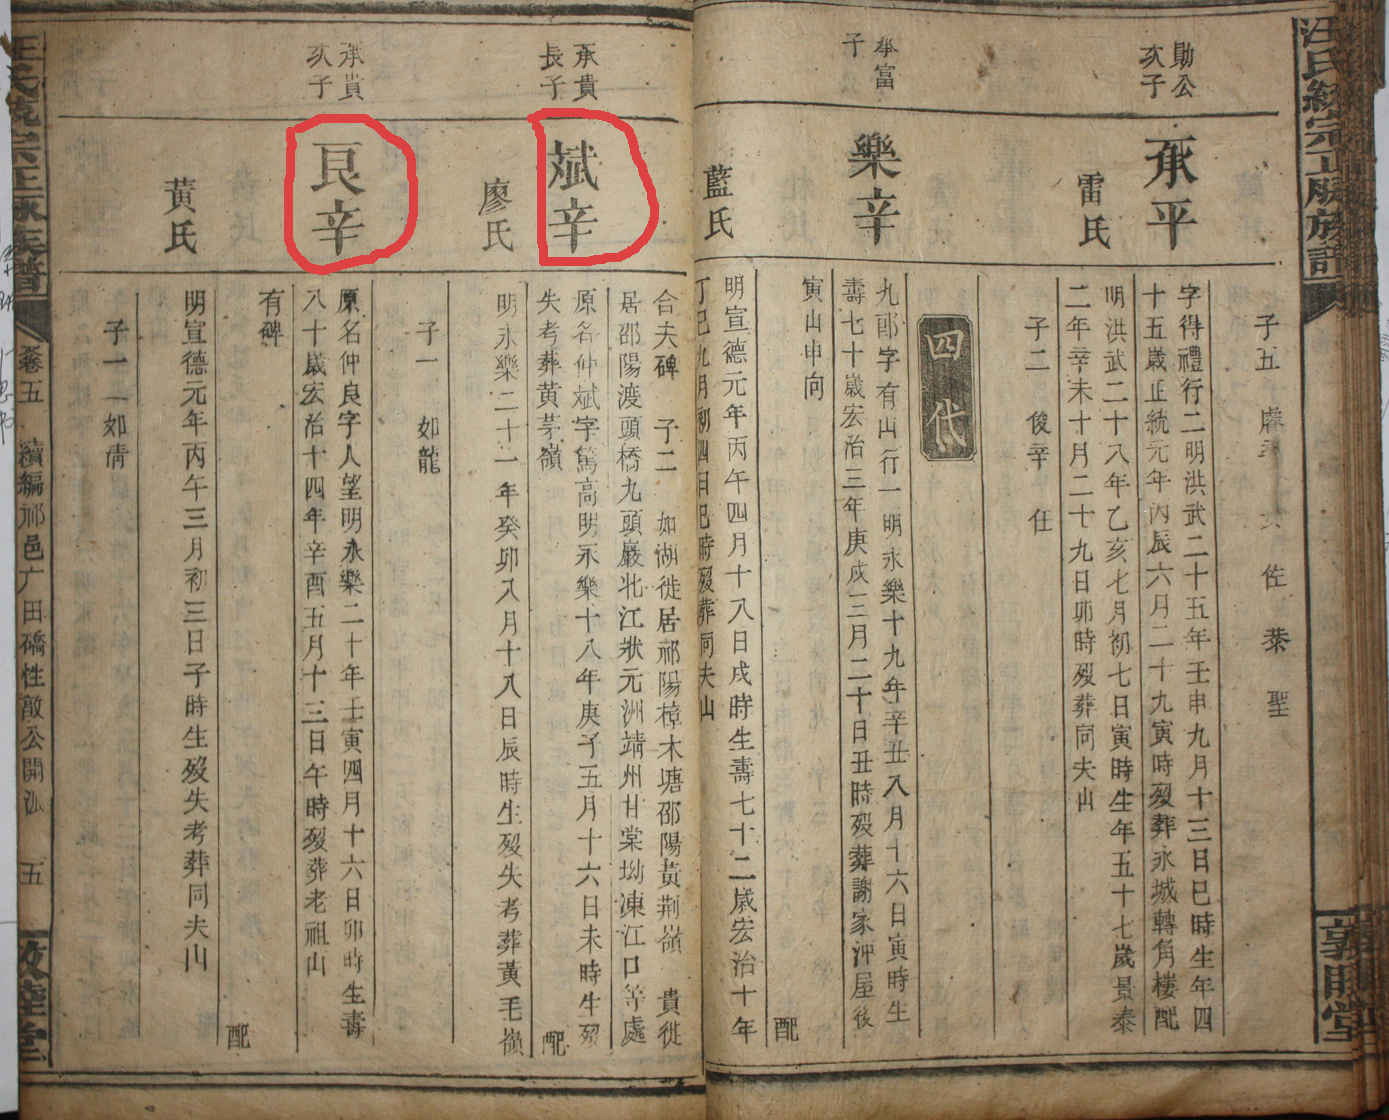 汪氏統宗正脉族譜
敦睦堂
子五
佐
聖
勛公
次子
承平
字得禮行二明洪武二十五年壬申九月十三日巳時生年四
十五歲正統元年丙辰六月二十九寅時歿葬永城轉角樓配
雷氏
明洪武二十八年乙亥七月初七日寅時生年五十七歲景泰
二年辛未十月二十九日卯時歿葬同夫山
子二 俊辛 任
四代
承富
子
樂辛
九郎字有山行一明永樂十九年辛丑八月十六日寅時生
壽七十歲宏治三年庚戍三月二十日丑時歿葬謝家沖屋後
寅山申向
配
藍氏
明宣德元年丙午四月十八日戌時生壽七十二歲宏治十年
丁巳九月初四日巳時歿葬同夫山
合夫碑 子二 如湖徙居祁陽樟木塘邵陽黃荆嶺 貴徙
居邵陽渡頭橋九頭巖北江狀元洲靖州甘棠坳凍江口等處
承貴
長子
斌辛
原名仲斌字篤高明永樂十八年庚子五月十六日未時生歿
失考葬黃茅嶺
配
廖氏
明永樂二十一年癸卯八月十八日辰時生歿失考葬黃毛嶺
子一 如龍
承貴
次子
艮辛
原名仲良字人望明永樂二十年壬寅四月十六日卯時生壽
八十歲宏治十四年辛酉五月十三日午時歿葬老祖山
有碑
配
黃氏
明宣德元年丙午三月初三日子時生歿失考葬同夫山
子一 如倩
汪氏統宗正脉族譜
卷五 續編祁邑广田礄性敵公開派 五
敦睦堂